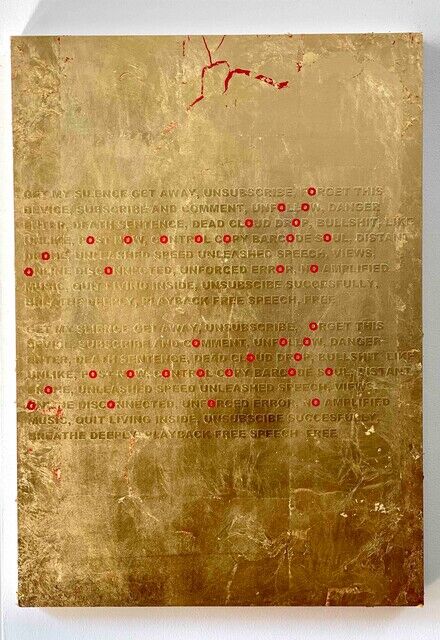 GET MY SILENCE GET AWAY, UNSUBSCRIBE, FORGET THIS
DEVICE, SUBSCRIBE AND COMMENT, UNFOLLOW, DANGER
ENTER, DEATH SENTENCE, DEAD CLOUD DROP, BULLSHIT, LIKE
UNLIKE, POST NOW, CONTROL COPY BARCODE SOUL, DISTANT
DRONE, UNLEASHED SPEED UNLEASHED SPEECH, VIEWS,
ONLINE DISCONNECTED, UNFORCED ERROR, NO AMPLIFIED
MUSIC, QUIT LIVING INSIDE, UNSUBSCIBE SUCCESFULLY,
BREATHE DEEPLY, PLAYBACK FREE SPEECH, FREE
GET MY SILENCE GET AWAY, UNSUBSCRIBE, FORGET THIS
DEVICE, SUBSCRIBE AND COMMENT, UNFOLLOW, DANGER
ENTER, DEATH SENTENCE, DEAD CLOUD DROP, BULLSHIT, LIKE
UNLIKE, POST NOW, CONTROL COPY BARCODE SOUL, DISTANT
DRONE, UNLEASHED SPEED UNLEASHED SPEECH, VIEWS,
ONLINE DISCONNECTED, UNFORCED ERROR, NO AMPLIFIED
MUSIC, QUIT LIVING INSIDE, UNSUBSCIBE SUCCESFULLY,
BREATHE DEEPLY, PLAYBACK FREE SPEECH, FREE